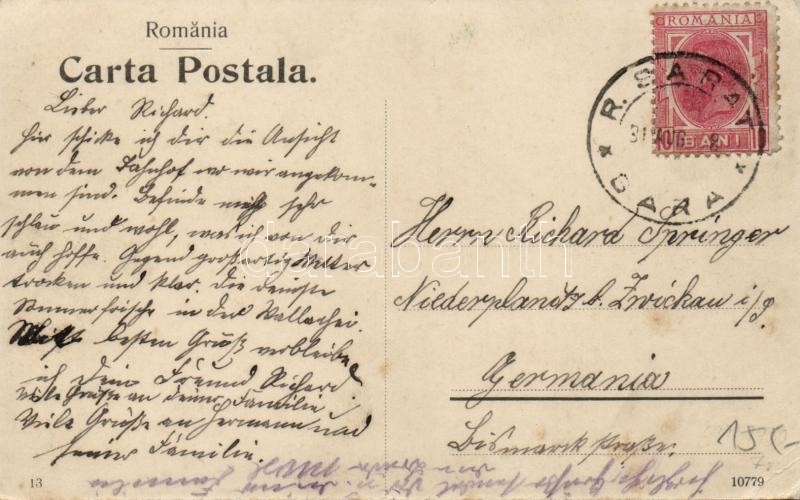 România
Carta Postala.
Lieber Richard.
hier schicke ich dir die Ansicht
von dem Bahnhof wo wir angekom-
men sind. Befinde mich sehr
schlau und wohl, was ich von dir
auch hoffe. Gegend großartig Wetter
trocken und klar. Die
Sommerfrische in der Wallachei.
Mit besten Gruß verbleibe
ich Dein Freund Richard.
Viele Grüße an deine Familie
Viele Grüße an Hermann und
seiner Familie.
ROMANIA
10 BANI
R. SARAT
GARA
Herrn Richard Springer
Niederplanitz b. Zwickau i/S.
Germania
Bismarckstraße.
15(-
databanth
13
10779